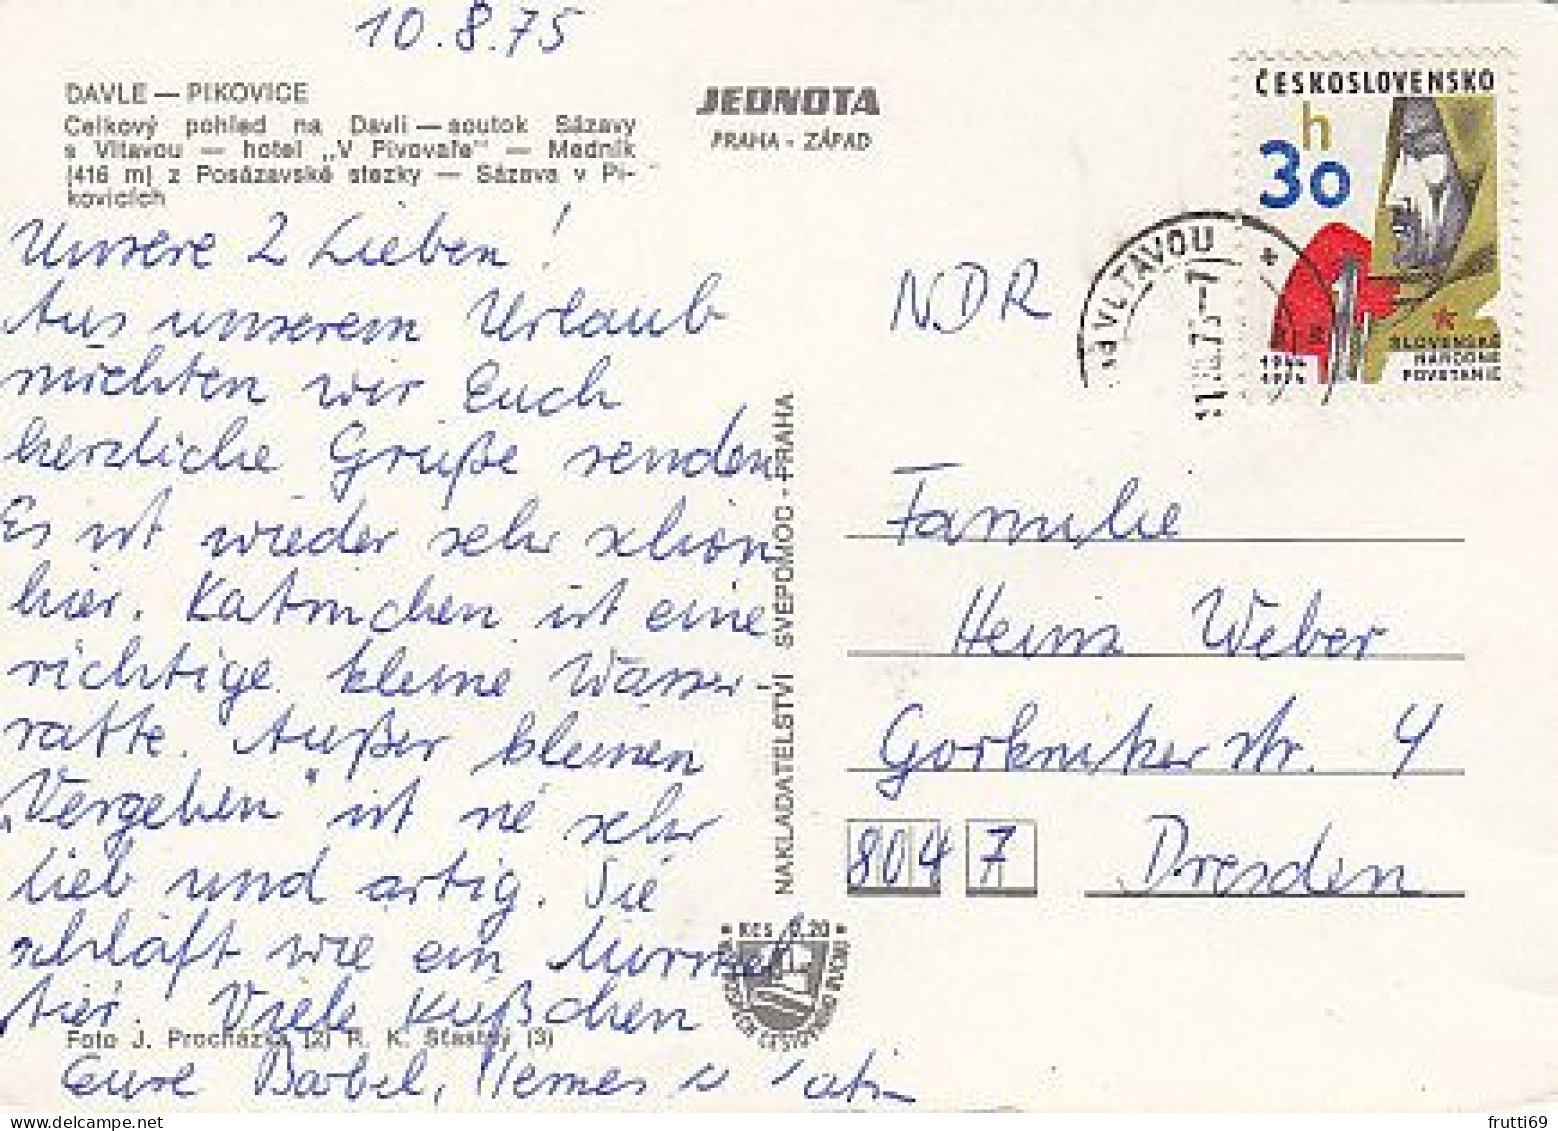 10.8.75
DAVLE — PIKOVICE
Celkový pohled na Davli — soutok Sázavy
s Vltavou — hotel „V Pivovaře" — Medník
(416 m) z Posázavské stezky — Sázava v Pi-
kovicích
JEDNOTA
PRAHA - ZÁPAD
ČESKOSLOVENSKO
h
30
1944
1974
SLOVENSKÉ
NÁRODNÉ
POVSTANIE
VLTAVOU
Unsere 2 Lieben!
Aus unserem Urlaub
möchten wir Euch
herzliche Grüße senden
Es ist wieder sehr schön
hier. Katrinchen ist eine
richtige kleine Wasser-
ratte. Außer kleinen
„Vergehen" ist sie sehr
lieb und artig. Sie
schläft wie ein Murmel
tier. Viele Küßchen
Eure Bärbel, Hannes u. Kati
Foto J. Procházka (2) R. K. Šťastný (3)
NAKLADATELSTVÍ SVÉPOMOC - PRAHA
NDR
Familie
Heinz Weber
Gorkniker str. 4
804 7 Dresden
* Kčs 0,20 *
frutti69